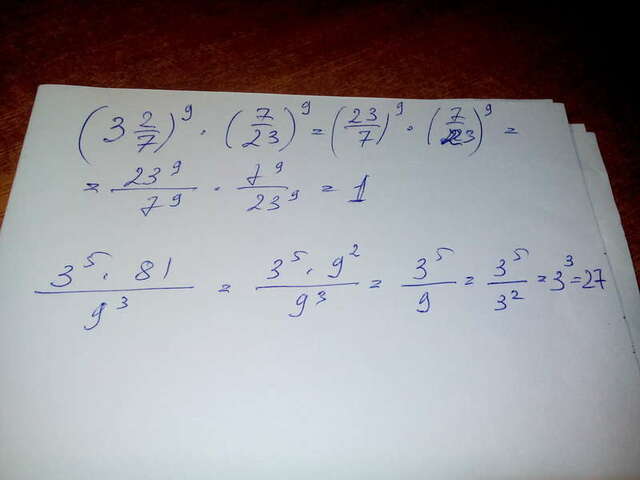 (3 2/7)^9 · (7/23)^9 = (23/7)^9 · (7/23)^9 =
= 23^9/7^9 · 7^9/23^9 = 1
3^5 · 81/9^3 = 3^5 · 9^2/9^3 = 3^5/9 = 3^5/3^2 = 3^3 = 27